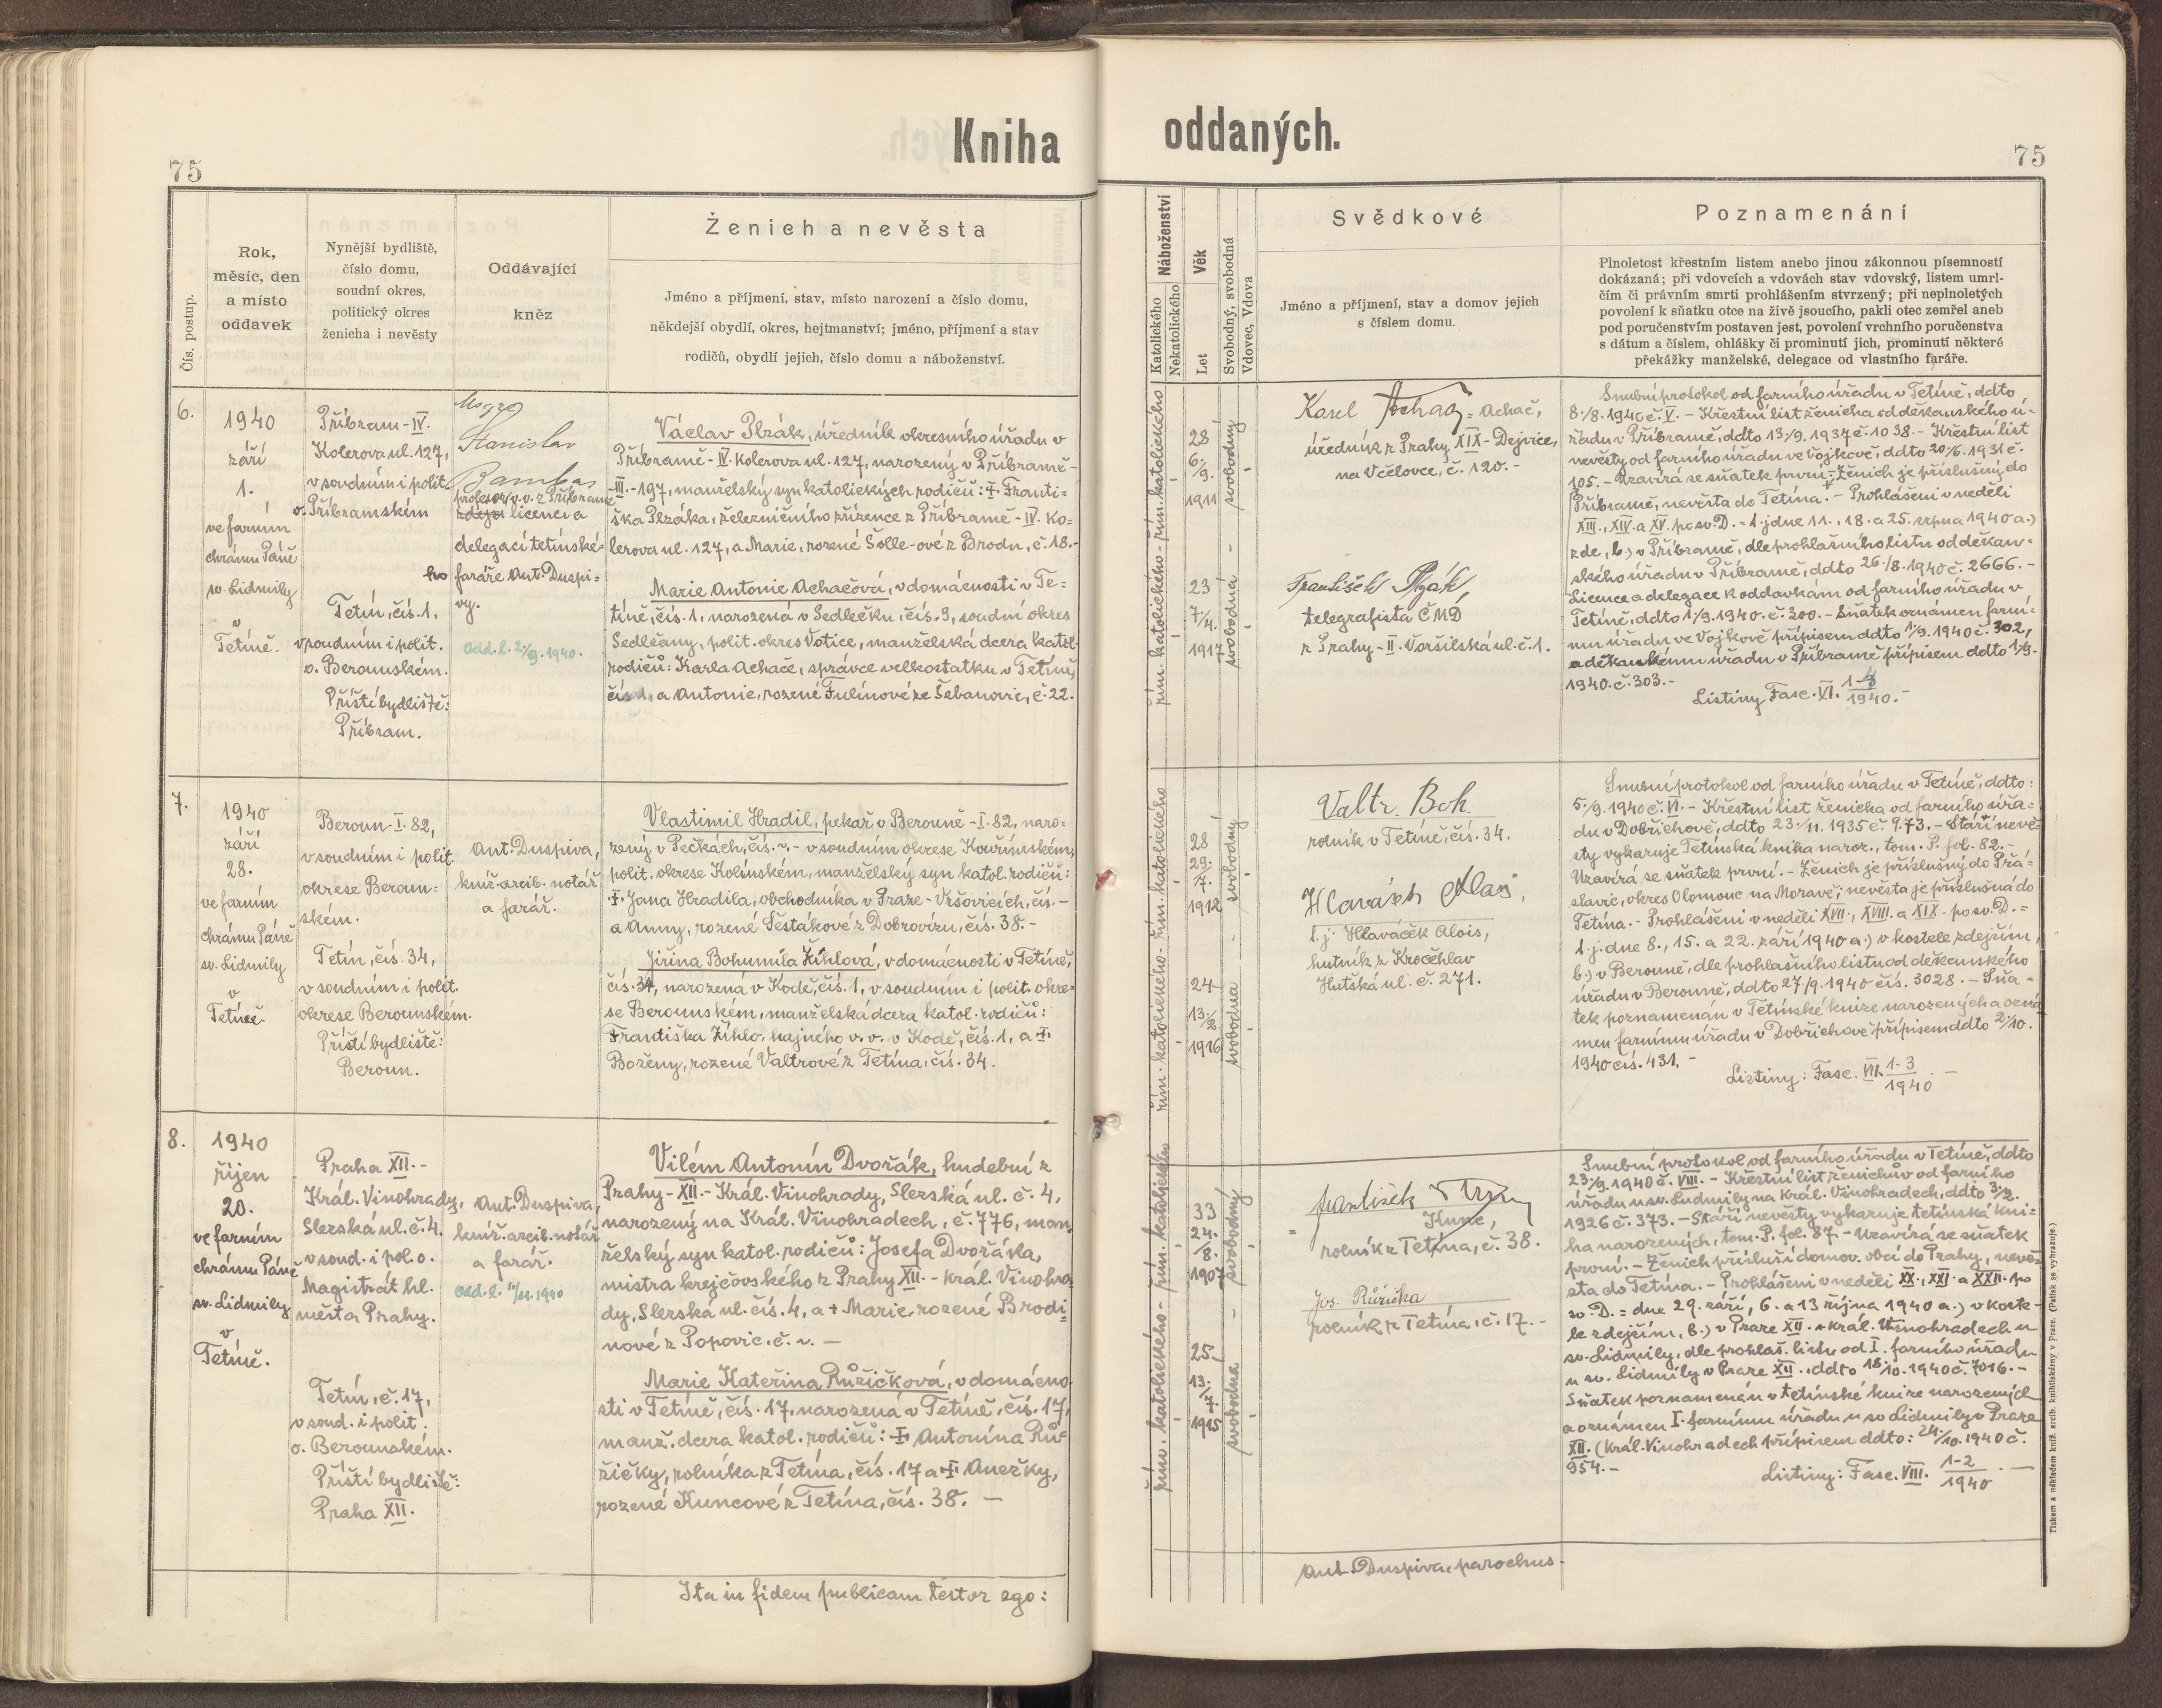 Kniha oddaných.
75
75
Čís. postup.
Rok,
měsíc, den
a místo
oddavek
Nynější bydliště,
číslo domu,
soudní okres,
politický okres
ženicha i nevěsty
Oddávající
kněz
Ženich a nevěsta
Jméno a příjmení, stav, místo narození a číslo domu,
někdejší obydlí, okres, hejtmanství; jméno, příjmení a stav
rodičů, obydlí jejich, číslo domu a náboženství.
Náboženství
Katolického
Nekatolického
Věk
Let
Svobodný, svobodná
Vdovec, Vdova
Svědkové
Jméno a příjmení, stav a domov jejich
s číslem domu.
Poznamenání
Plnoletost křestním listem anebo jinou zákonnou písemností
dokázaná; při vdovcích a vdovách stav vdovský, listem umrl-
čím či právním smrti prohlášením stvrzený; při neplnoletých
povolení k sňatku otce na živě jsoucího, pakli otec zemřel aneb
pod poručenstvím postaven jest, povolení vrchního poručenstva
s dátum a číslem, ohlášky či prominutí jich, prominutí některé
překážky manželské, delegace od vlastního faráře.
6.
1940
září
1.
ve farním
chrámu Páně
sv. Lidmily
v
Tetíně.
Příbram-IV.
Kolerova ul. 127,
v soudním i polit.
o. Příbramském
Tetín, čís. 1,
v soudním i polit.
o. Berounském.
Příští bydliště:
Příbram.
Msgre
Stanislav
Bambas
profesor v.v. z Příbramě
licencí a
delegací tetínské-
ho faráře Ant. Duspi-
vy.
Odd. l. 2/9. 1940.
Václav Plzák, úředník okresního úřadu v
Příbramě-IV. Kolerova ul. 127, narozený v Příbramě-
-III.-197, manželský syn katolických rodičů: ✝. Franti-
ška Plzáka, železničního zřízence z Příbramě-IV. Ko-
lerova ul. 127, a Marie, rozené Šolle-ové z Brodu, č. 18.-
Marie Antonie Achačová, v domácnosti v Te-
tíně, čís. 1, narozená v Sedlečku, čís. 3, soudní okres
Sedlčany, polit. okres Votice, manželská dcera katol.
rodičů: Karla Achače, správce velkostatku v Tetíně,
čís. 1, a Antonie, rozené Fulínové ze Šebanovic, č. 22.
řím. katolického - řím. katolického
28
6/9.
1911
svobodný
23
7/4.
1917
svobodná
Karel Achač = Achač,
úředník z Prahy XIX-Dejvice,
na Včelovce, č. 120.-
František Plzák,
telegrafista ČMD
z Prahy-II. Voršilská ul. č. 1.
Snubní protokol od farního úřadu v Tetíně, ddto
8./8. 1940 č. V. - Křestní list ženicha od děkanského ú-
řadu v Příbramě, ddto 13./9. 1937 č. 1038. - Křestní list
nevěsty od farního úřadu ve Vojkově, ddto 20/6. 1931 č.
105. - Uzavírá se sňatek první. - Ženich je příslušný do
Příbramě, nevěsta do Tetína. - Prohlášeni v neděli
XIII., XIV. a XV. po sv. D. = t. j. dne 11., 18. a 25. srpna 1940 a.)
zde, b.) v Příbramě, dle prohlašního listu od děkan-
ského úřadu v Příbramě, ddto 26./8. 1940 č. 2666. -
Licence a delegace k oddavkám od farního úřadu v
Tetíně, ddto 1/9. 1940. č. 300. - Sňatek oznámen farní-
mu úřadu ve Vojkově přípisem ddto 1/9. 1940 č. 302,
a děkanskému úřadu v Příbramě přípisem ddto 1/9.
1940. č. 303.-
Listiny Fasc. VI. 1-4/1940.-
7.
1940
září
28.
ve farním
chrámu Páně
sv. Lidmily
v
Tetíně.
Beroun-I. 82,
v soudním i polit.
okrese Beroun-
ském.
Tetín, čís. 34,
v soudním i polit.
okrese Berounském.
Příští bydliště:
Beroun.
Ant. Duspiva,
kníž. arcib. notář
a farář.
Vlastimil Hradil, pekař v Berouně-I. 82, naro-
zený v Pečkách, čís. ~, - v soudním okrese Kouřimském,
polit. okrese Kolínském, manželský syn katol. rodičů:
✝. Jana Hradila, obchodníka v Praze-Vršovicích, čís. -
a Anny, rozené Šestákové z Dobrovízu, čís. 38.-
Jiřina Bohumila Žihlová, v domácnosti v Tetíně,
čís. 34, narozená v Kodě, čís. 1, v soudním i polit. okre-
se Berounském, manželská dcera katol. rodičů:
Františka Žihlo, hajného v. v. v Kodě, čís. 1, a ✝.
Boženy, rozené Valtrové z Tetína, čís. 34.
řím. katolického - řím. katolického
28
29./7.
1912
svobodný
24
13./2.
1916
svobodná
Valtr. Boh.
rolník v Tetíně, čís. 34.
Hlaváček Alois,
t. j. Hlaváček Alois,
hutník z Kročehlav
Huťská ul. č. 271.
Snubní protokol od farního úřadu v Tetíně, ddto:
5./9. 1940 č. VI. - Křestní list ženicha od farního úřa-
du v Dobřichově, ddto 23./11. 1935 č. 973. - Stáří nevě-
sty vykazuje Tetínská kniha naroz., tom. P. fol. 82. -
Uzavírá se sňatek první. - Ženich je příslušný do Přá-
slavic, okres Olomouc na Moravě; nevěsta je příslušná do
Tetína. - Prohlášeni v neděli XVII., XVIII. a XIX. po sv. D. =
t. j. dne 8., 15. a 22. září 1940 a.) v kostele zdejším,
b.) v Berouně, dle prohlašního listu od děkanského
úřadu v Berouně, ddto 27/9. 1940 čís. 3028. - Sňa-
tek poznamenán v Tetínské knize narozených a ozná-
men farnímu úřadu v Dobřichově přípisem ddto 2./10.
1940 čís. 431. -
Listiny: Fasc. VII. 1-3/1940. -
8.
1940
říjen
20.
ve farním
chrámu Páně
sv. Lidmily
v
Tetíně.
Praha XII.-
Král. Vinohrady,
Slezská ul. č. 4.
v soud. i pol. o.
Magistrát hl.
města Prahy.
Tetín, č. 17,
v soud. i polit.
o. Berounském.
Příští bydliště:
Praha XII.
Ant. Duspiva,
kníž. arcib. notář
a farář.
Odd. l. 10/11. 1940
Vilém Antonín Dvořák, hudební z
Prahy-XII.-Král. Vinohrady, Slezská ul. č. 4,
narozený na Král. Vinohradech, č. 776, man-
želský syn katol. rodičů: Josefa Dvořáka,
mistra krejčovského z Prahy XII.-Král. Vinohra
dy, Slezská ul. čís. 4, a + Marie, rozené Brodi-
nové z Popovic, č. ~. -
Marie Kateřina Růžičková, v domácno
sti v Tetíně, čís. 17, narozená v Tetíně, čís. 17,
manž. dcera katol. rodičů: ✝. Antonína Rů-
žičky, rolníka z Tetína, čís. 17 a ✝. Anežky,
rozené Kuncové z Tetína, čís. 38. -
římo. katolického - řím. katolickém
33
24./8.
1907
svobodný
25
13./7.
1915
svobodná
František Kunc
Kunc,
rolník z Tetína, č. 38.
Jos. Růžička
rolník z Tetína, č. 17.-
Snubní protokol od farního úřadu v Tetíně, ddto
23./9. 1940 č. VIII. - Křestní list ženichův od farního
úřadu u sv. Ludmily na Král. Vinohradech, ddto 3/2.
1926 č. 373. - Stáří nevěsty vykazuje tetínská kni-
ha narozených, tom. P. fol. 87. - Uzavírá se sňatek
první. - Ženich přísluší domov. obcí do Prahy, nevě-
sta do Tetína. - Prohlášeni v neděli XX., XXI. a XXII. po
sv. D. = dne 29. září, 6. a 13 října 1940 a.) v koste-
le zdejším, b.) v Praze XII. - Král. Vinohradech u
sv. Lidmily, dle prohlaš. listu od I. farního úřadu
u sv. Lidmily v Praze XII., ddto 18./10. 1940 č. 7016. -
Sňatek poznamenán v tetínské knize narozených
a oznámen I. farnímu úřadu u sv Lidmily v Praze
XII. (Král. Vinohradech přípisem ddto: 24./10. 1940 č.
954.-
Listiny: Fasc. VIII. 1-2/1940. -
Ita in fidem publicam testor ego:
Ant. Duspiva, parochus.
Tiskem a nákladem kníž. arcib. knihtiskárny v Praze. (Patisk se vyhrazuje.)